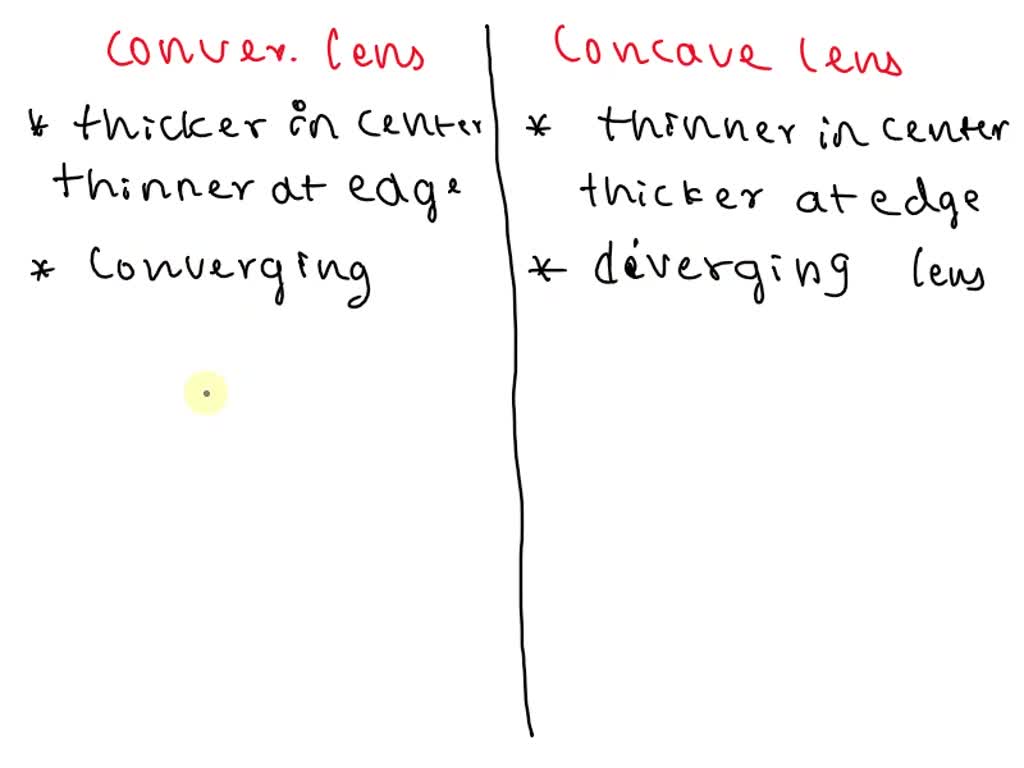 Conver. lens
* thicker in center
thinner at edge
* Converging
Concave lens
* thinner in center
thicker at edge
* diverging lens